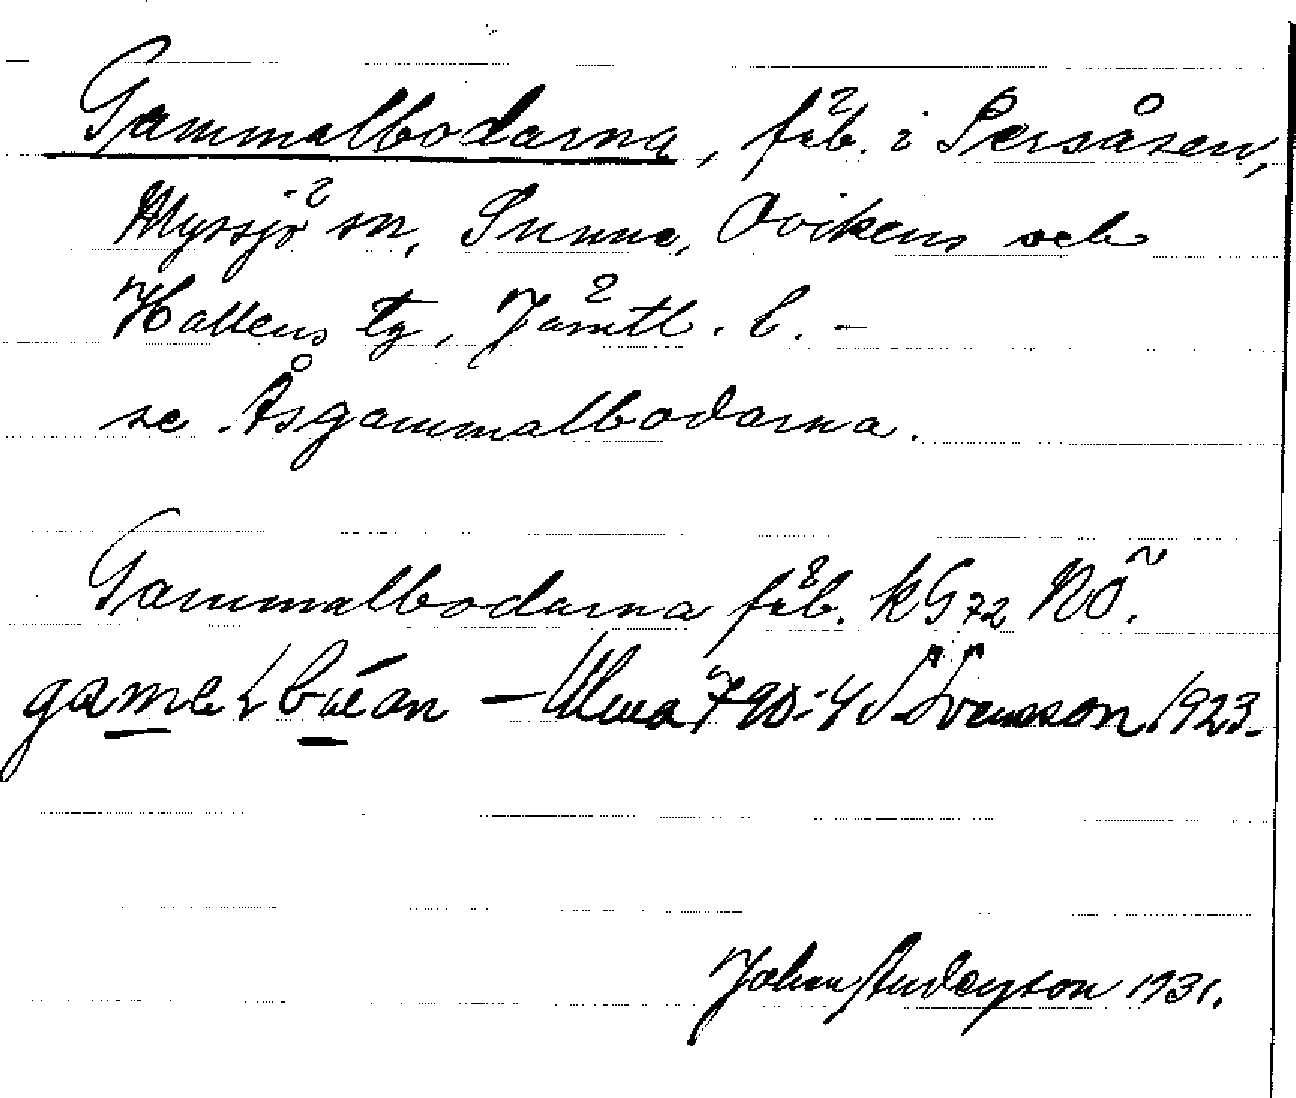 Gammalbodarna, fäb. i Persåsen,
Myssjö sn, Sunne, Ovikens och
Hallens tg, Jämtl. l. –
se Åsgammalbodarna.
Gammalbodarna fäb. kG72 NÖ.
– Ulma 790:4 Svensson 1923.
Johan Anderson 1931.